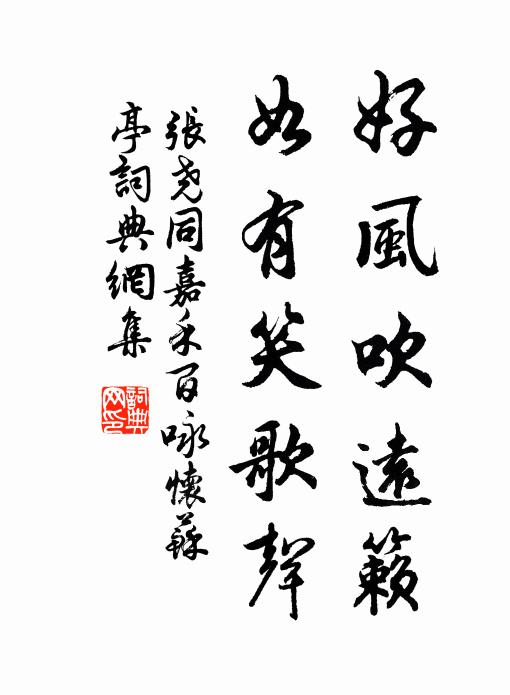 好風吹遠籟
如有笑歌聲
張堯同嘉禾百咏懷蘇
亭詞典網集
詞典網印